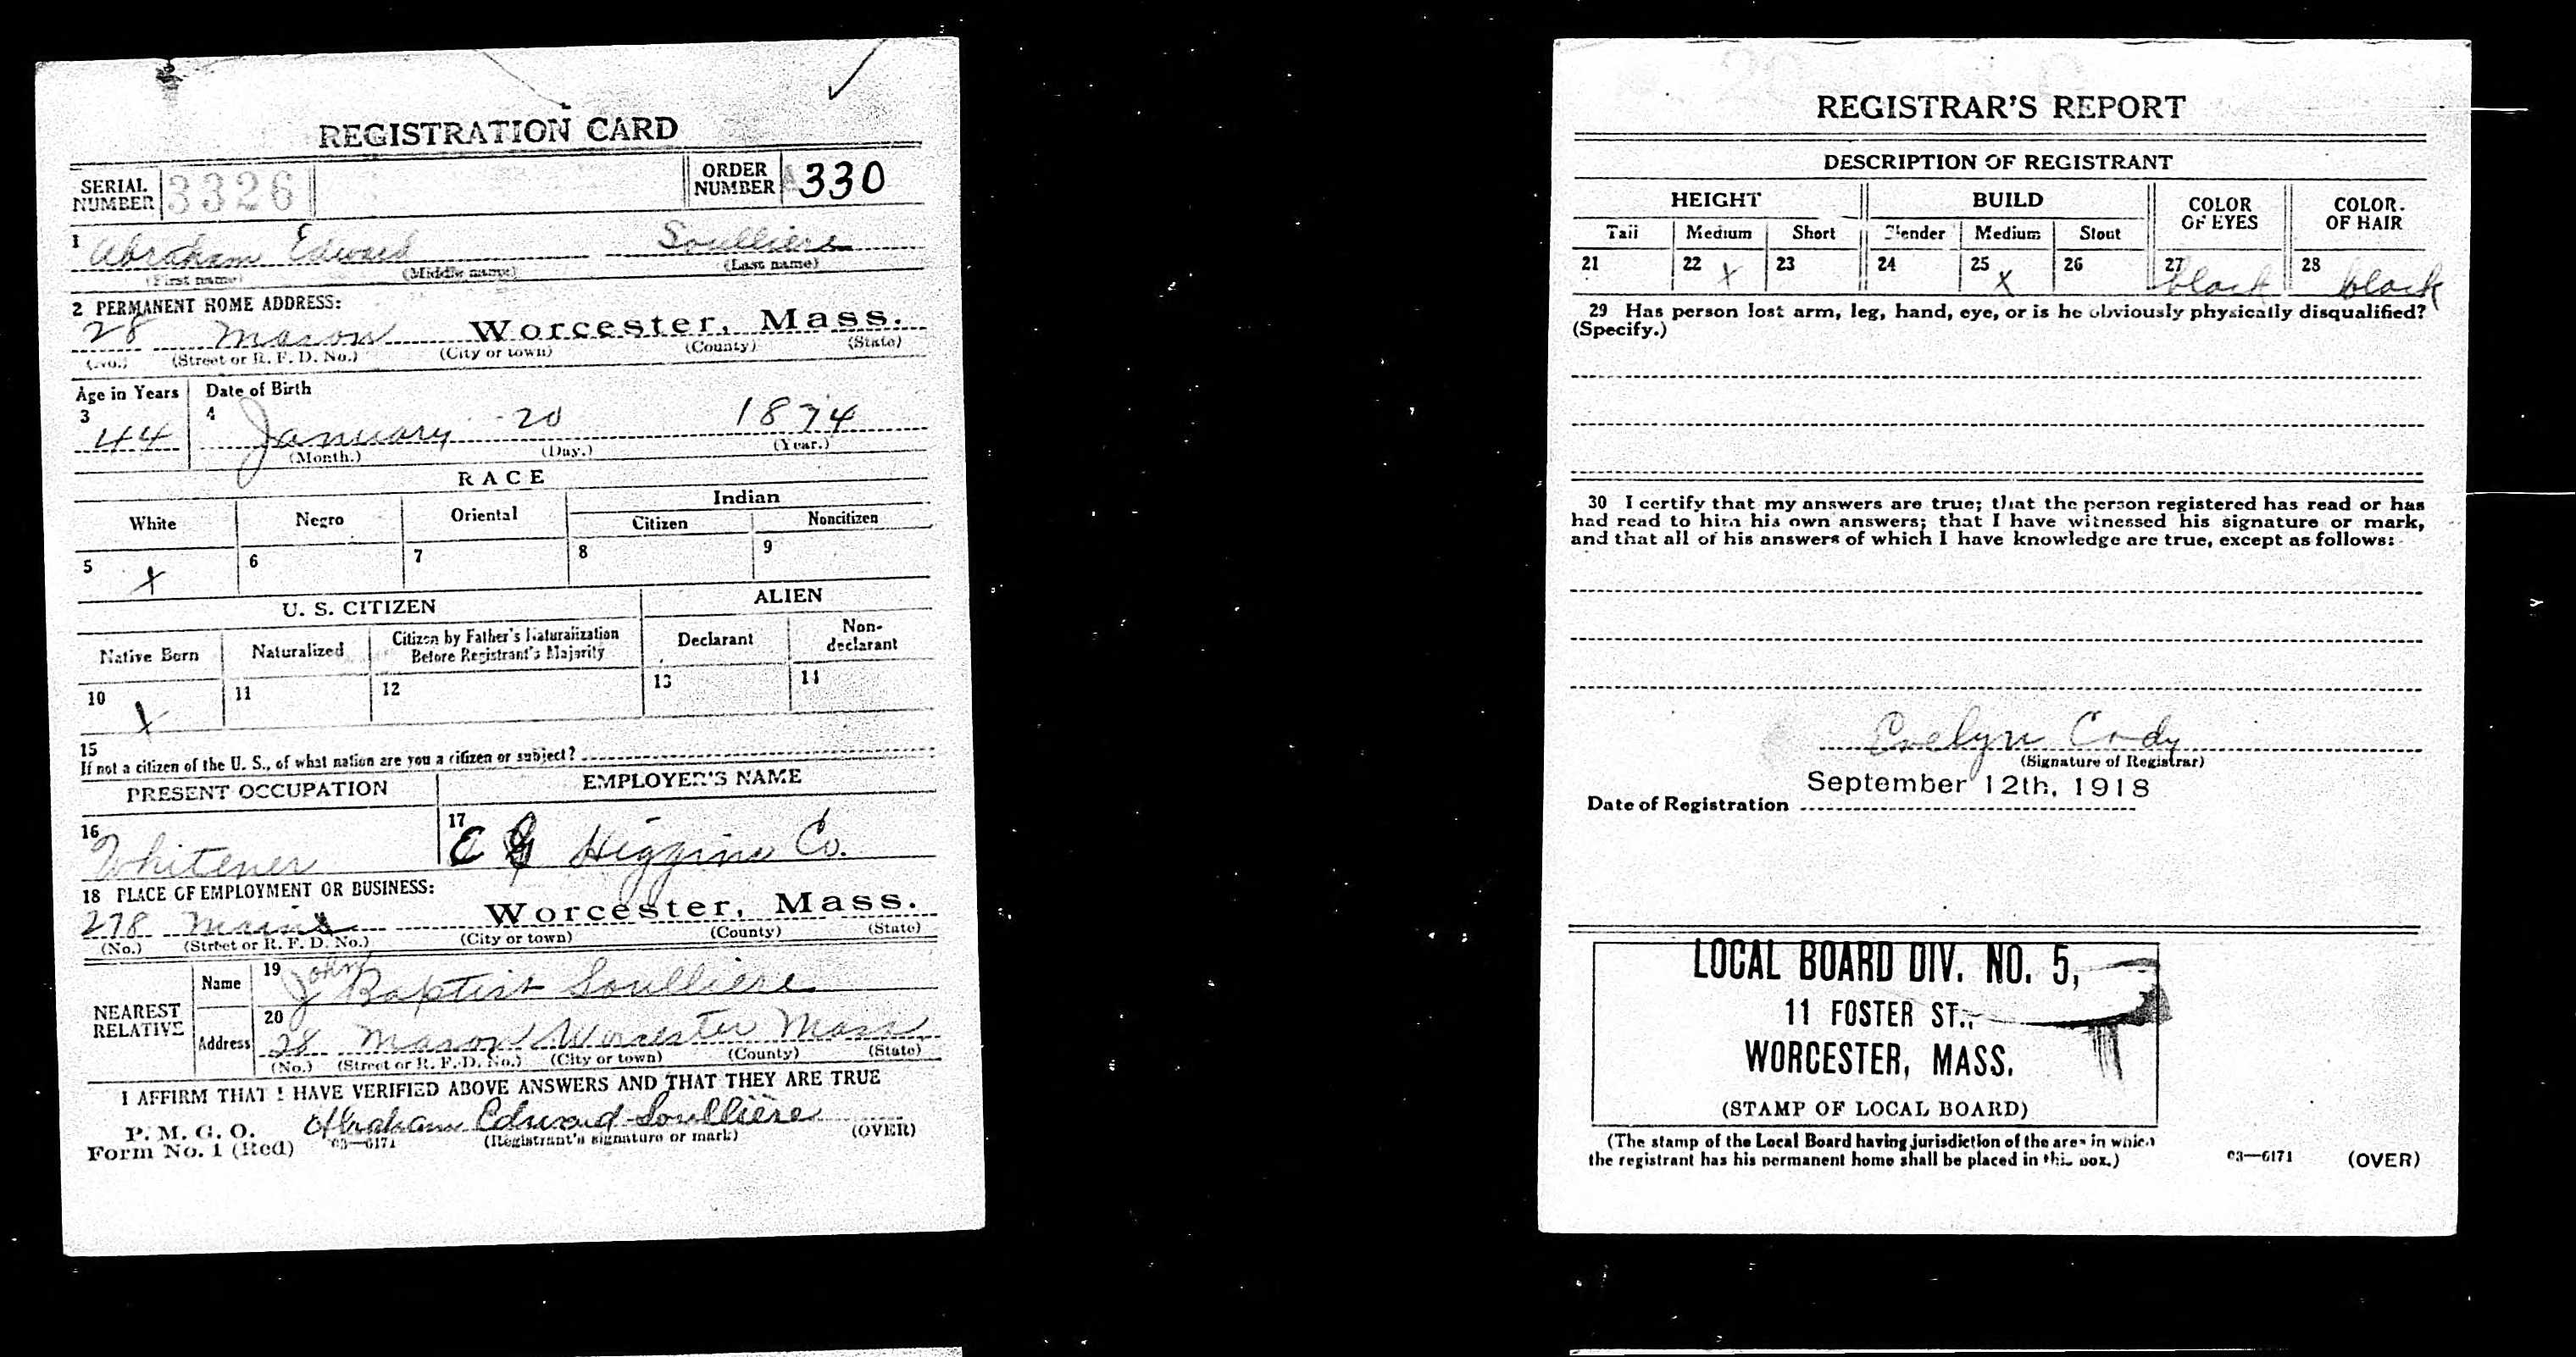 REGISTRATION CARD
SERIAL NUMBER 3326 ORDER NUMBER A 330
1 Abraham Edward Soulliere
(First name) (Middle name) (Last name)
2 PERMANENT HOME ADDRESS:
28 Mason Worcester, Mass.
(No.) (Street or R. F. D. No.) (City or town) (County) (State)
Age in Years Date of Birth
3 4
44 January 20 1874
(Month.) (Day.) (Year.)
RACE
White Negro Oriental Indian
Citizen Noncitizen
5 X 6 7 8 9
U. S. CITIZEN ALIEN
Native Born Naturalized Citizen by Father's Naturalization Before Registrant's Majority Declarant Non-declarant
10 X 11 12 13 14
15
If not a citizen of the U. S., of what nation are you a citizen or subject?
PRESENT OCCUPATION EMPLOYER'S NAME
16 Whitener 17 E G Higgins Co.
18 PLACE OF EMPLOYMENT OR BUSINESS:
278 Main Worcester, Mass.
(No.) (Street or R. F. D. No.) (City or town) (County) (State)
NEAREST RELATIVE
Name 19 John
J Baptist Soulliere
Address 20 28 Mason Worcester Mass
(No.) (Street or R. F. D. No.) (City or town) (County) (State)
I AFFIRM THAT I HAVE VERIFIED ABOVE ANSWERS AND THAT THEY ARE TRUE
Abraham Edward Soulliere
P. M. G. O.
Form No. 1 (Red) 03—6171 (Registrant's signature or mark) (OVER)
REGISTRAR'S REPORT
DESCRIPTION OF REGISTRANT
HEIGHT BUILD COLOR OF EYES COLOR OF HAIR
Tall Medium Short Slender Medium Stout
21 22 X 23 24 25 X 26 27 black 28 black
29 Has person lost arm, leg, hand, eye, or is he obviously physically disqualified?
(Specify.)
30 I certify that my answers are true; that the person registered has read or has
had read to him his own answers; that I have witnessed his signature or mark,
and that all of his answers of which I have knowledge are true, except as follows:
Evelyn Cody
(Signature of Registrar)
Date of Registration September 12th, 1918
LOCAL BOARD DIV. NO. 5,
11 FOSTER ST.,
WORCESTER, MASS.
(STAMP OF LOCAL BOARD)
(The stamp of the Local Board having jurisdiction of the area in which
the registrant has his permanent home shall be placed in this box.)
03—6171 (OVER)